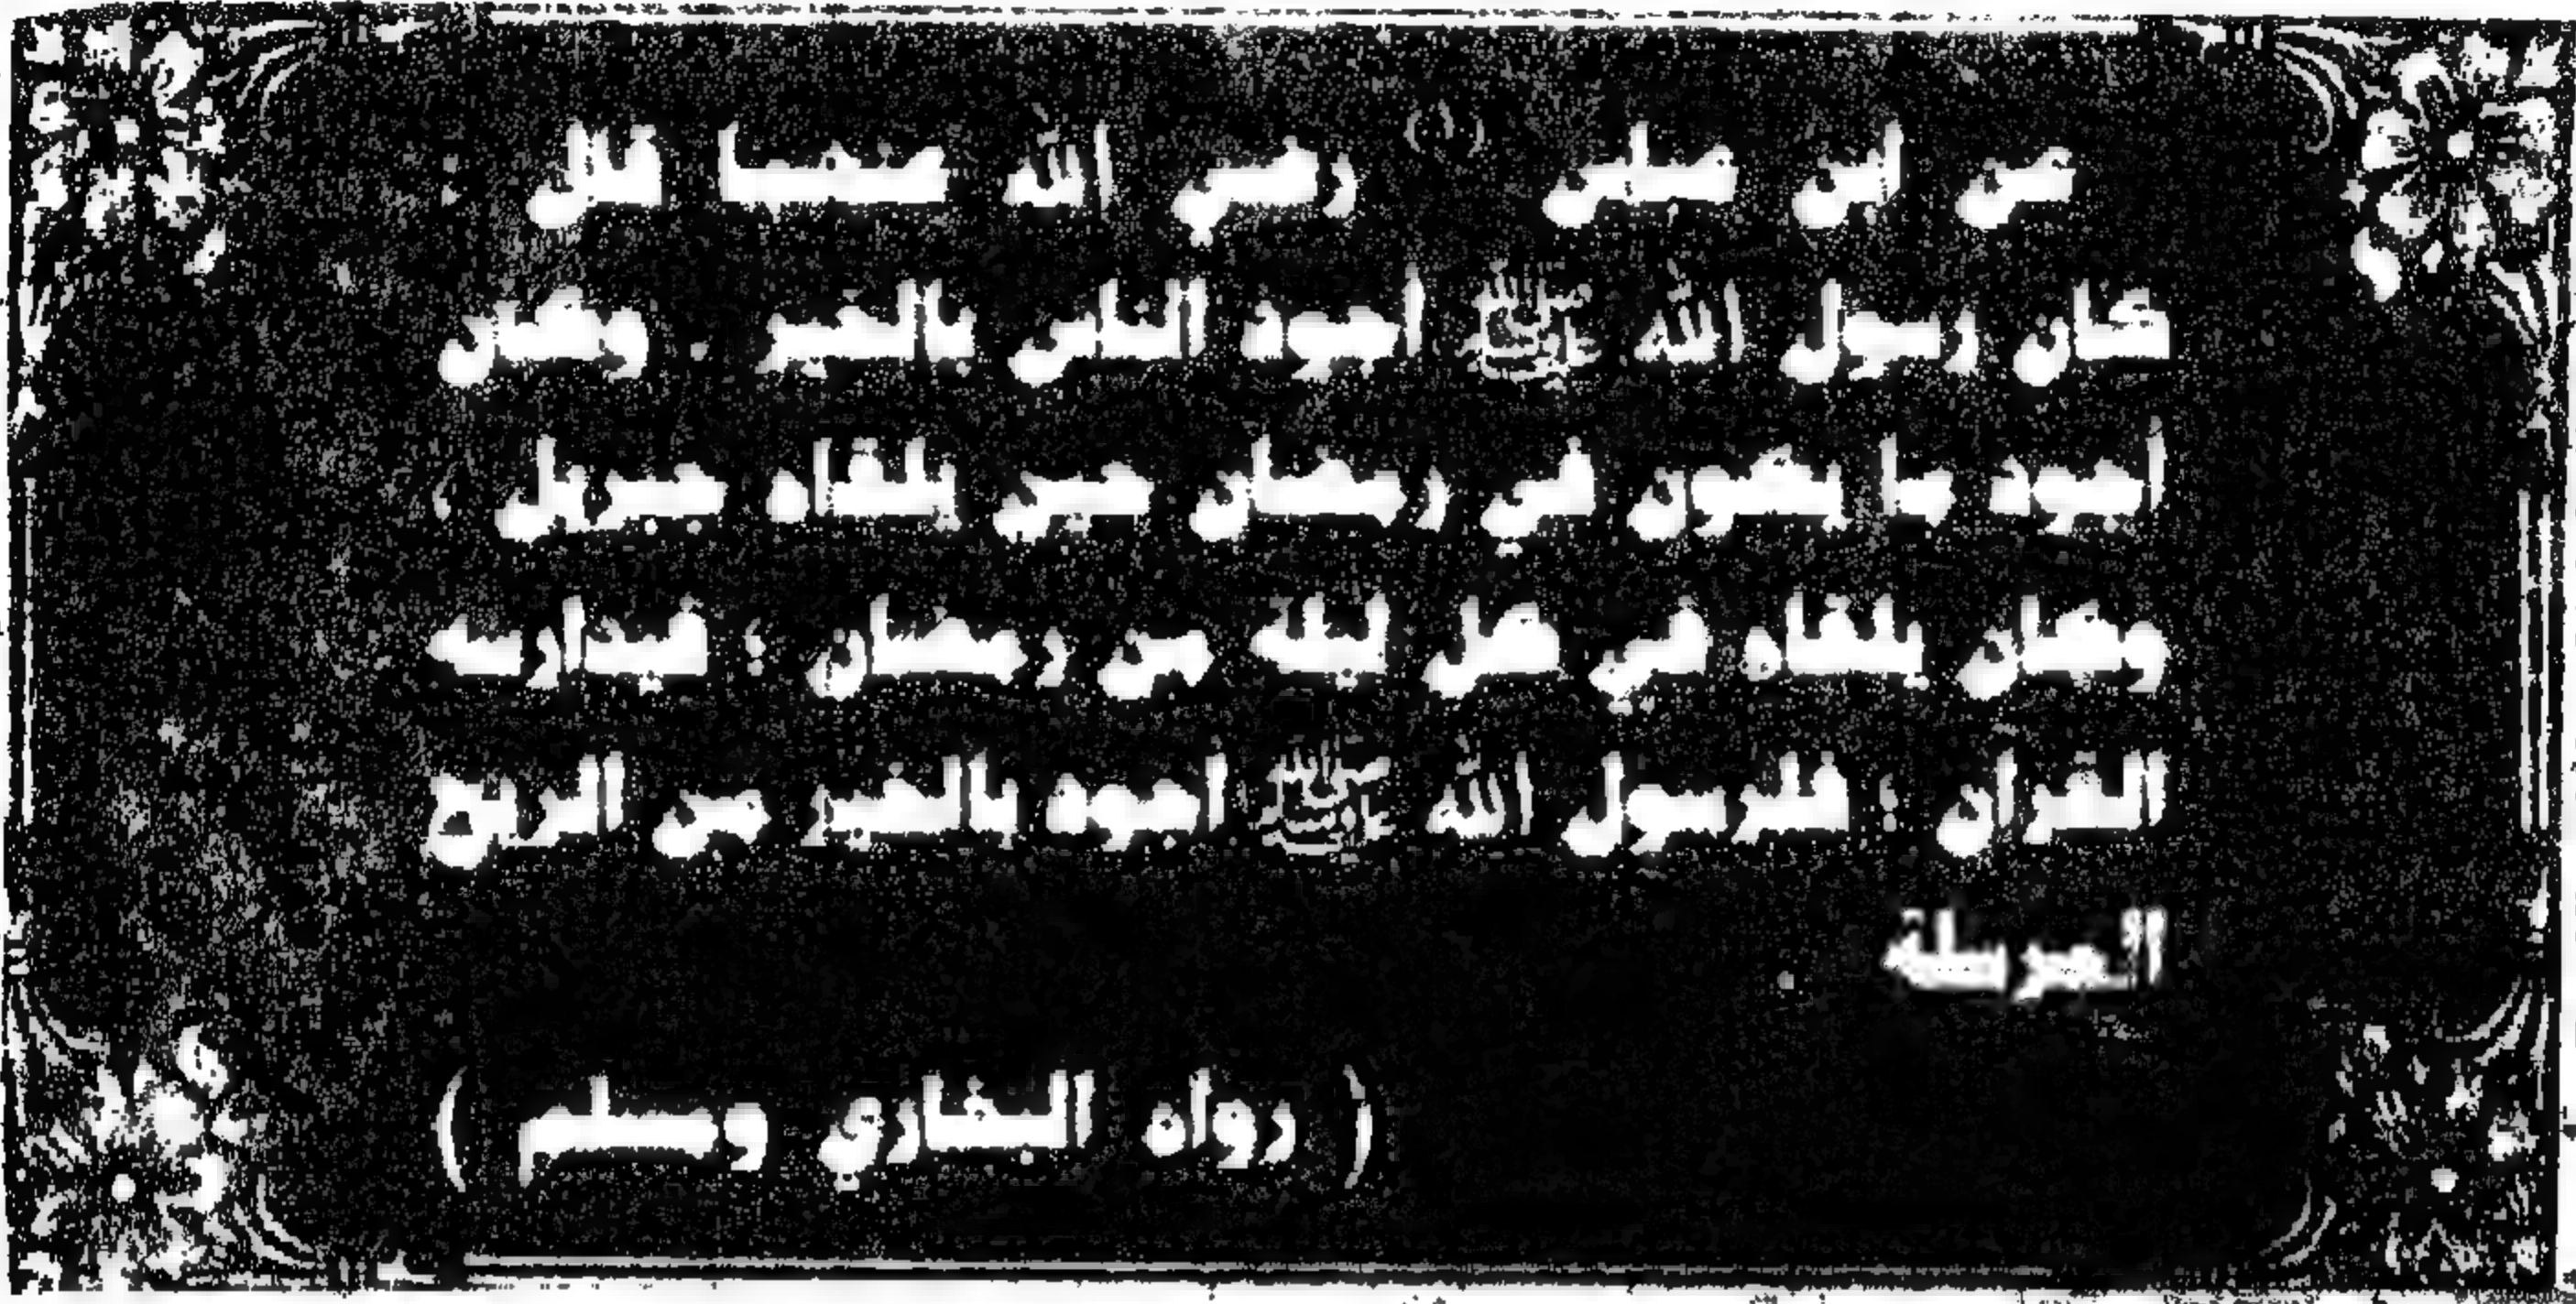 عن ابن عباس (١) رضي الله عنهما قال :
كان رسول الله ﷺ أجود الناس بالخير . وكان
أجود ما يكون في رمضان حين يلقاه جبريل ،
وكان يلقاه في كل ليلة من رمضان ؛ فيدارسه
القرآن ؛ فلرسول الله ﷺ أجود بالخير من الريح
المرسلة .
( رواه البخاري ومسلم )